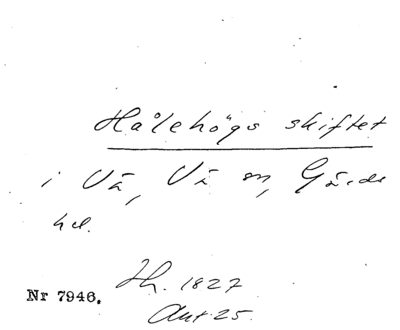 Hålehögs skiftet
i Vä, Vä sn, Gärds
hd.
Jh. 1827
Nr 7946.
Akt 25